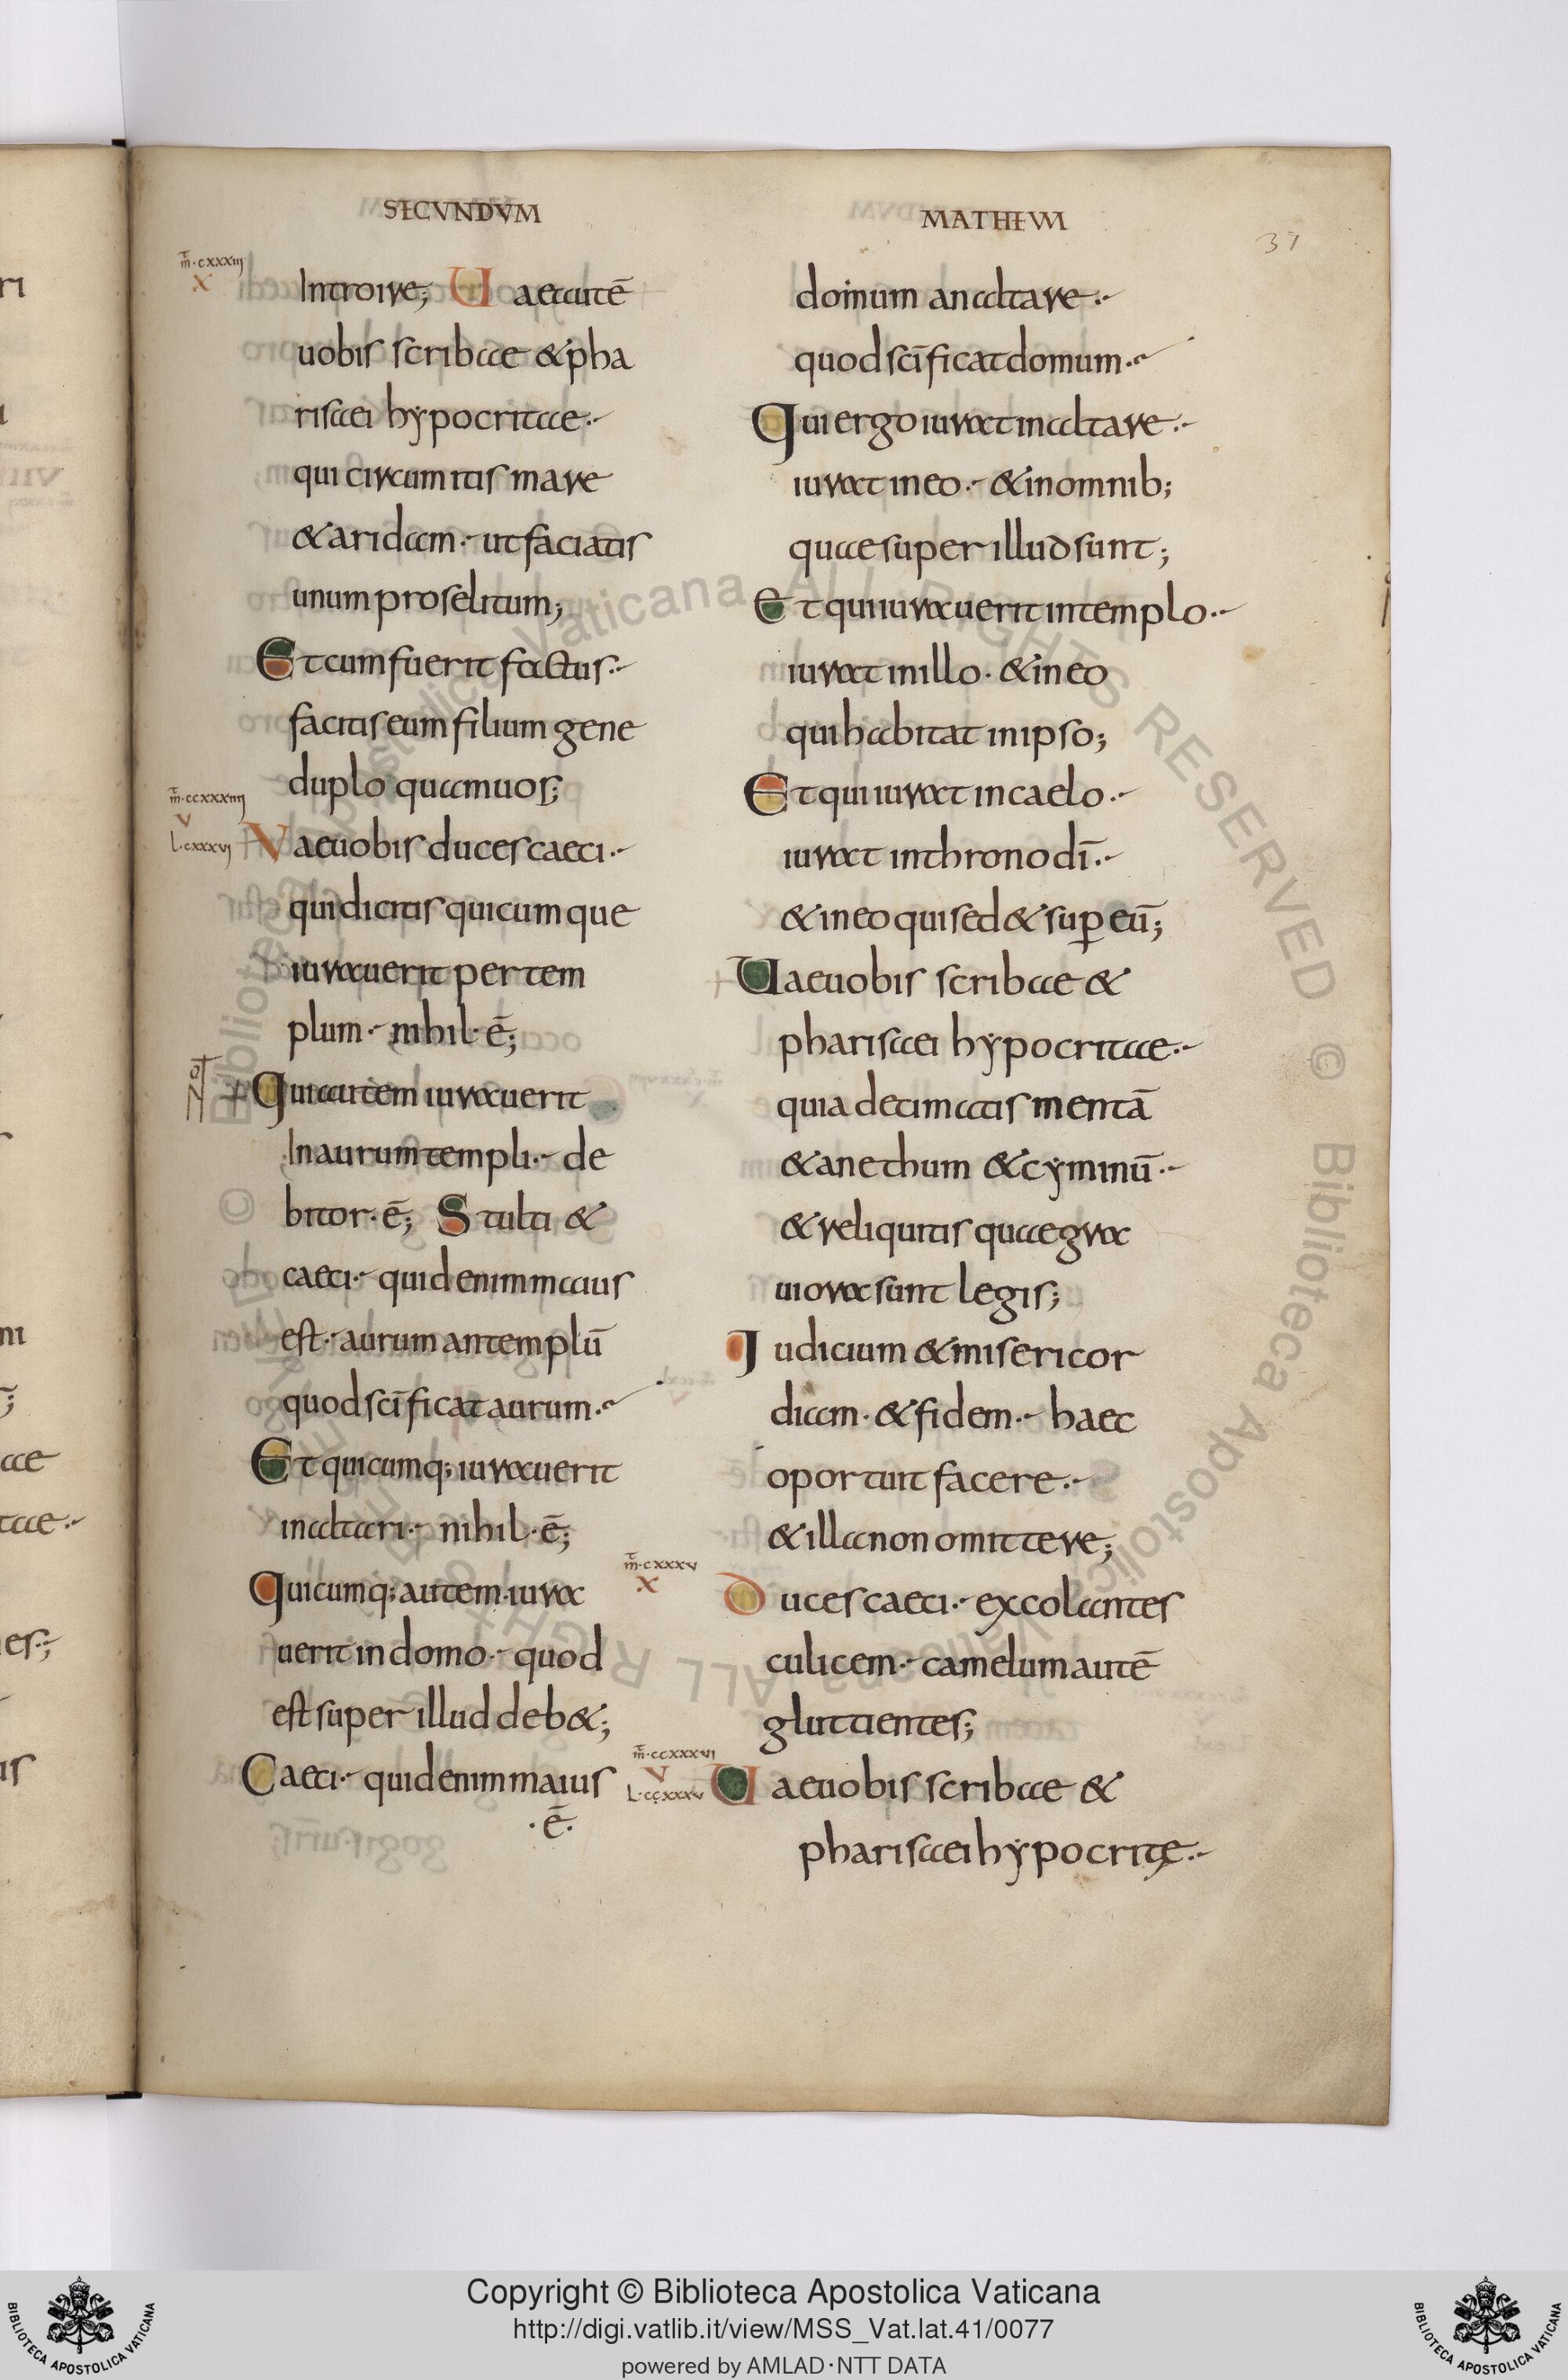 SECVNDVM
m̄·cxxxiij
x
Introire; Uae autē
uobis scribae & pha
risaei hypocritae·-
qui circumitis mare
& aridam·- ut faciatis
unum proselitum;
Et cum fuerit factus·-
facitis eum filium gene
duplo quam uos;
m̄·ccxxxiiij
v
l·cxxxvj
Vae uobis duces caeci·-
qui dicitis quicumque
iurauerit per tem
plum·- nihil·ē;
Qui autem iurauerit
In aurum templi·- de
bitor·ē; Stulti &
caeci·- quid enim maius
est·- aurum an templū
quod scīficat aurum·-
Et quicumq; iurauerit
in altari·- nihil·ē;
Quicumq; autem iura
uerit in domo·- quod
est super illud deb&;
Caeci·- quid enim maius
·ē·
MATHEVM
37
domum an altare·-
quod scīficat domum·-
Qui ergo iurat in altare·-
iurat in eo·- & in omnib;
quae super illud sunt;
Et qui iurauerit in templo·-
iurat in illo· & in eo
qui habitat in ipso;
Et qui iurat in caelo·-
iurat in throno dī·-
& in eo qui sed& sup eū;
Uae uobis scribae &
pharisaei hypocritae·-
quia decimatis mentā
& anethum & cyminū·-
& reliquitis quae gra
uiora sunt legis;
Judicium & misericor
diam· & fidem·- haec
oportuit facere·-
& illa non omittere;
m̄·cxxxv
x
Duces caeci·- excolantes
culicem·- camelum autē
gluttientes;
m̄·ccxxxvi
v
l·ccxxxv
Uae uobis scribae &
pharisaei hypocritę·-
© Biblioteca Apostolica Vaticana ALL RIGHTS RESERVED
© Biblioteca Apostolica Vaticana ALL RIGHTS RESERVED
BIBLIOTECA APOSTOLICA VATICANA
Copyright © Biblioteca Apostolica Vaticana
http://digi.vatlib.it/view/MSS_Vat.lat.41/0077
powered by AMLAD·NTT DATA
BIBLIOTECA APOSTOLICA VATICANA